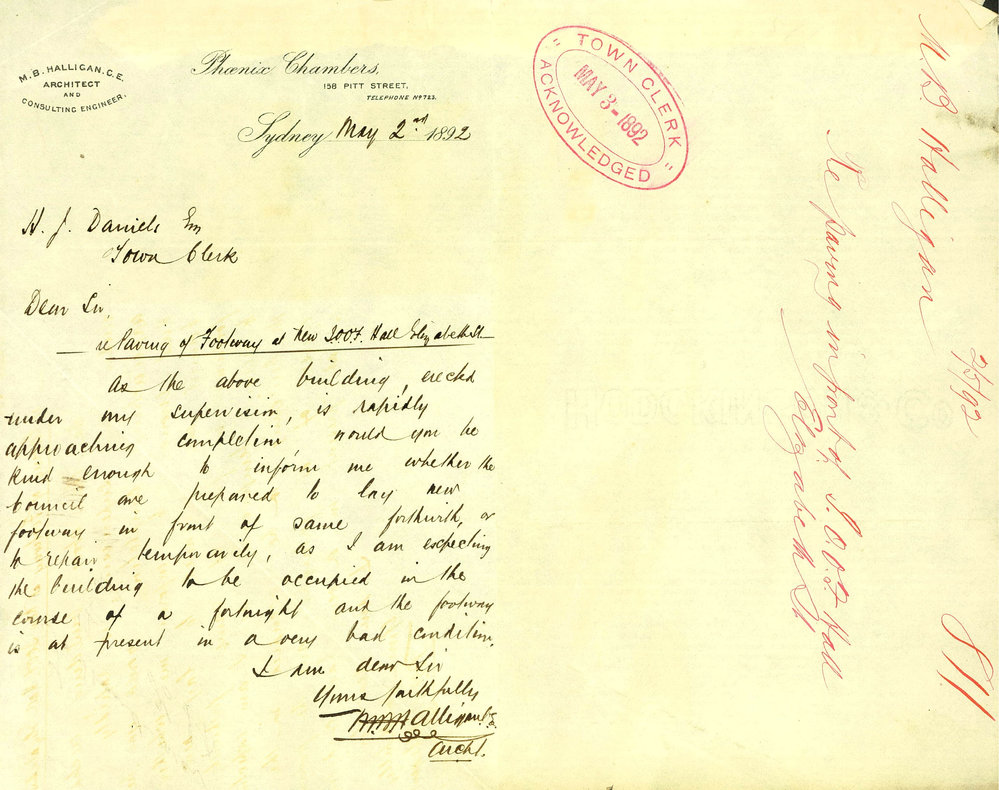 M. B. HALLIGAN. C.E.
ARCHITECT
AND
CONSULTING ENGINEER.
Phœnix Chambers,
158 PITT STREET,
TELEPHONE Nº 723.
Sydney May 2nd 1892
H. J. Daniels Esq
Town Clerk
Dear Sir,
re Paving of Footway at New I.O.O.F. Hall Elizabeth St.
As the above building, erected
under my supervision, is rapidly
approaching completion would you be
kind enough to inform me whether the
Council are prepared to lay new
footway in front of same forthwith, or
to repair temporarily, as I am expecting
the building to be occupied in the
course of a fortnight and the footway
is at present in a very bad condition.
I am dear Sir
Yours faithfully
M.B. Halligan C.E.
Archt.
" TOWN CLERK "
MAY 3-1892
ACKNOWLEDGED
M.B. Halligan
2/5/92
Re paving in front of I.O.O.F. Hall
Elizabeth St